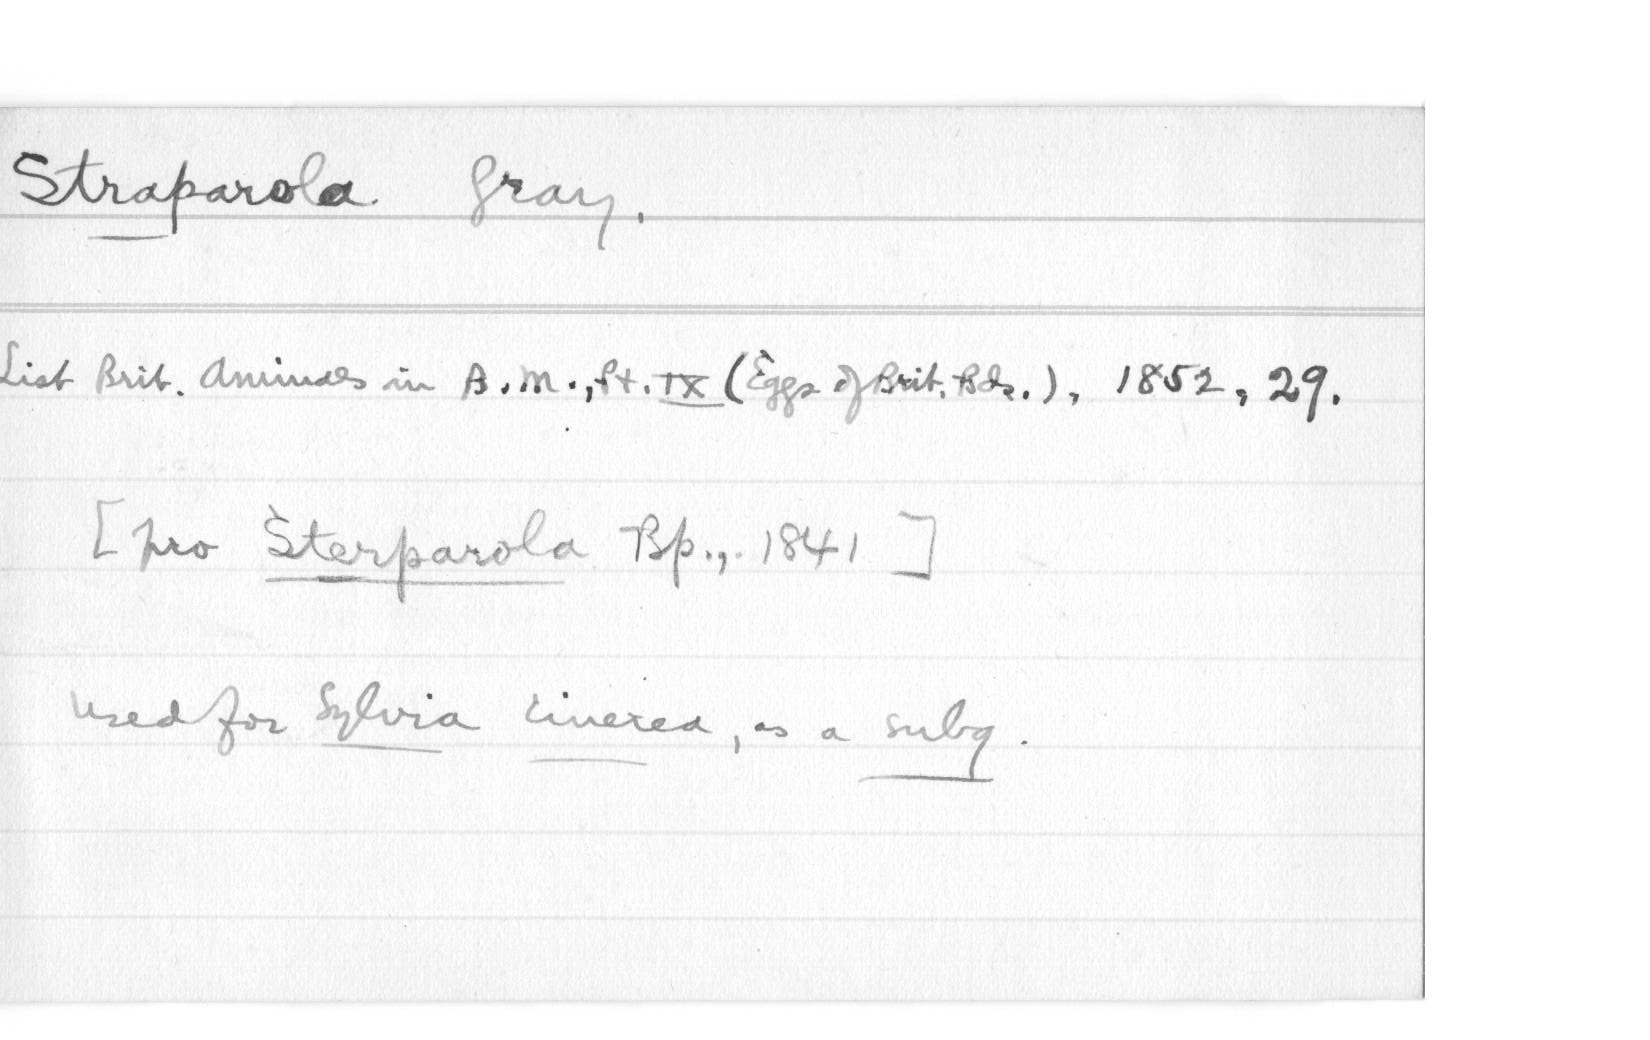 Straparola Gray.
List Brit. Animals in B.M., Pt. IX (Eggs of Brit. Bds.), 1852, 29.
[pro Sterparola Bp., 1841]
used for Sylvia cinerea, as a subg.